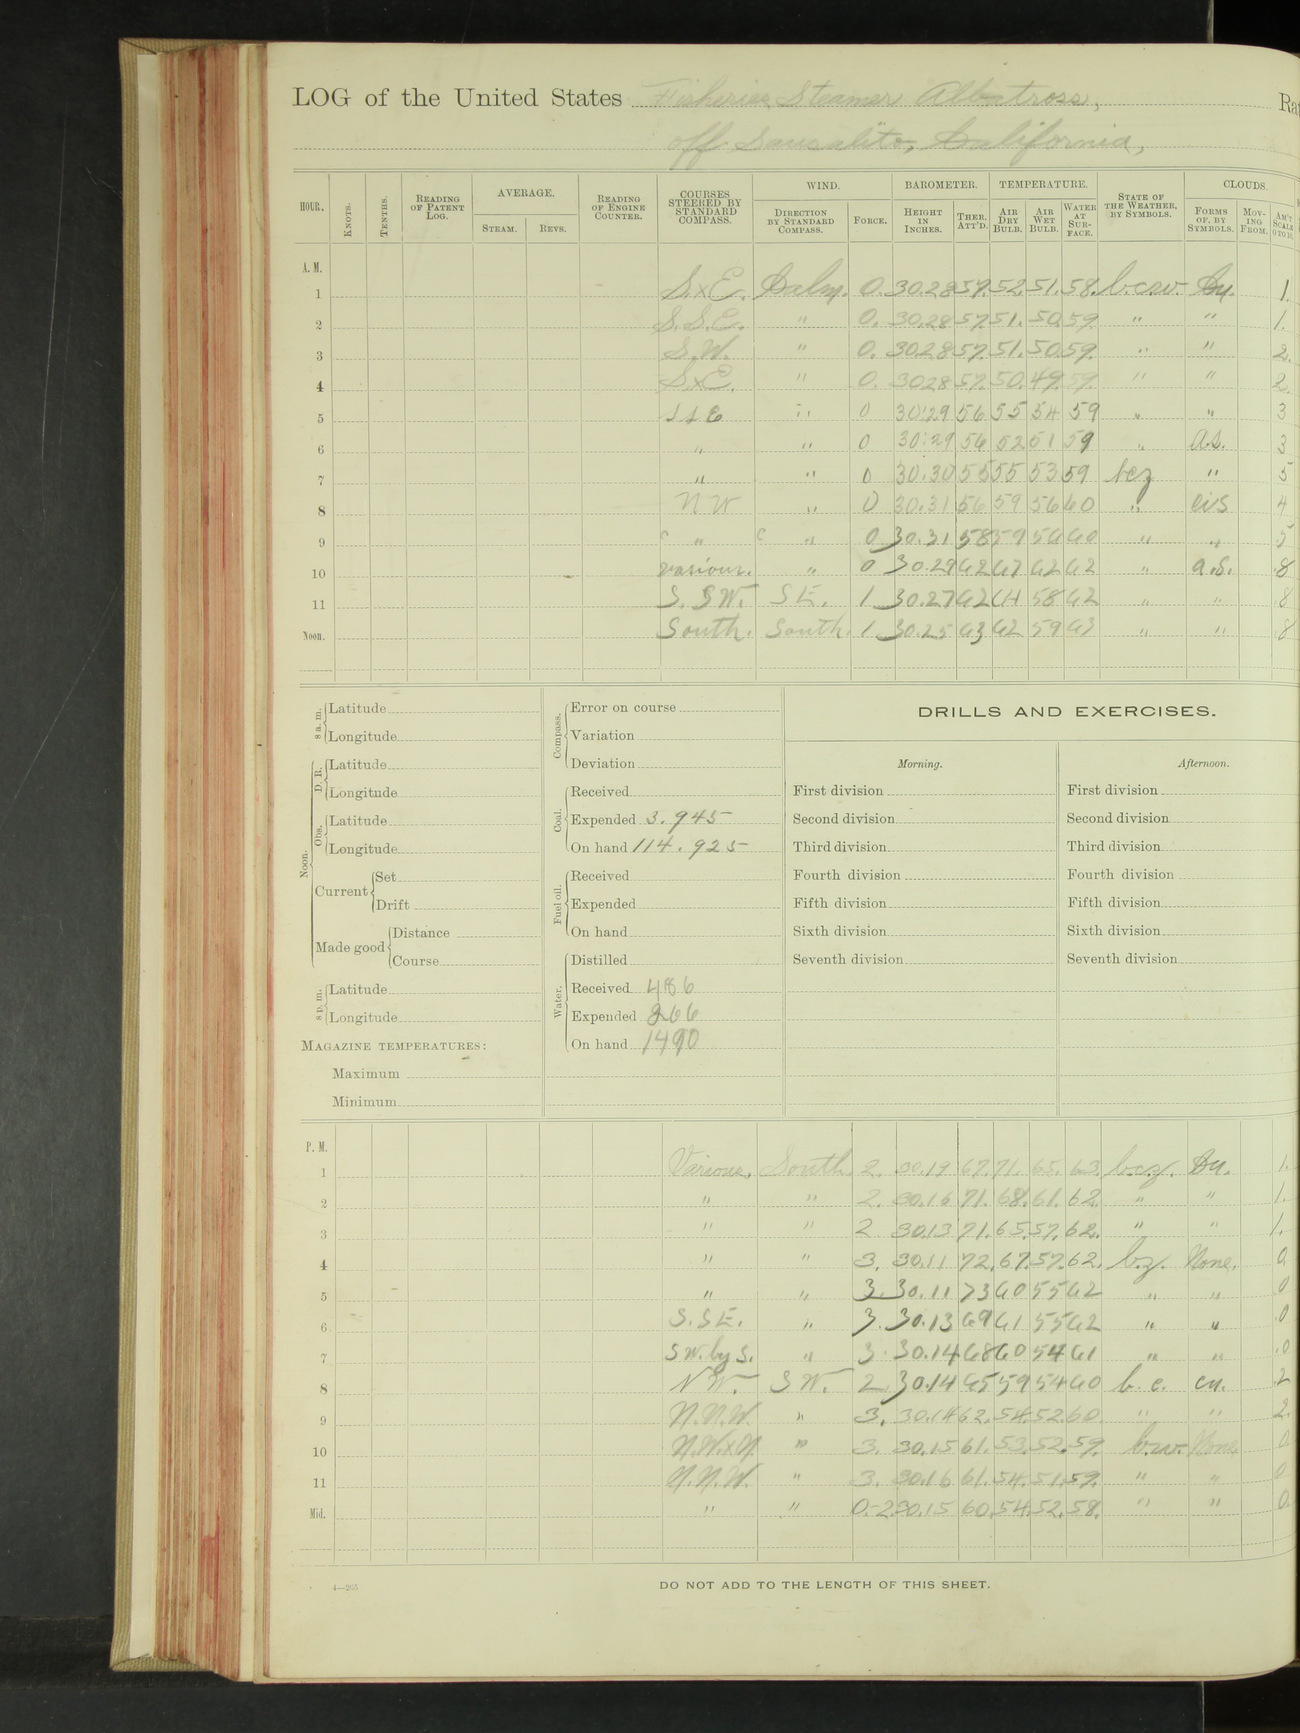 LOG of the United States Fisheries Steamer Albatross, Ra
off Sausalito, California,
HOUR. KNOTS. TENTHS. READING OF PATENT LOG. AVERAGE. STEAM. REVS. READING OF ENGINE COUNTER. COURSES STEERED BY STANDARD COMPASS. WIND. DIRECTION BY STANDARD COMPASS. FORCE. BAROMETER. HEIGHT IN INCHES. THER. ATT'D. TEMPERATURE. AIR DRY BULB. AIR WET BULB. WATER AT SURFACE. STATE OF THE WEATHER, BY SYMBOLS. CLOUDS. FORMS OF, BY SYMBOLS. MOVING FROM. AM'T SCALE 0 TO 10.
A. M.
1 S.xE. Calm. 0. 30.28 57. 52. 51. 58. b.c.w. Cu. 1.
2 S.S.E. " 0. 30.28 57. 51. 50. 59. " " 1.
3 S.W. " 0. 30.28 57. 51. 50. 59. " " 2.
4 S.xE. " 0. 30.28 57. 50. 49. 59. " " 2.
5 SSE " 0 30.29 56 55 54 59 " " 3
6 " " 0 30.29 56 52 51 59 " a.s. 3
7 " " 0 30.30 55 55 53 59 bcz " 5
8 NW " 0 30.31 56 59 56 60 " cis 4
9 " " 0 30.31 58 59 56 60 " " 5
10 various. " 0 30.29 62 67 62 62 " a.s. 8
11 S. SW. SE. 1 30.27 62 64 58 62 " " 8
Noon. South. South. 1 30.25 63 62 59 63 " " 8
8 a. m. Latitude
Longitude
Noon.
D. R. Latitude
Longitude
Obs. Latitude
Longitude
Current Set
Drift
Made good Distance
Course
8 p. m. Latitude
Longitude
MAGAZINE TEMPERATURES:
Maximum
Minimum
Compass. Error on course
Variation
Deviation
Coal. Received
Expended 3.945
On hand 114.925
Fuel oil. Received
Expended
On hand
Water. Distilled
Received 486
Expended 266
On hand 1490
DRILLS AND EXERCISES.
Morning.
First division
Second division
Third division
Fourth division
Fifth division
Sixth division
Seventh division
Afternoon.
First division
Second division
Third division
Fourth division
Fifth division
Sixth division
Seventh division
P. M.
1 Various. South. 2. 30.19 67. 71. 65. 63. b.c.z. Cu. 1.
2 " " 2. 30.16 71. 68. 61. 62. " " 1.
3 " " 2 30.13 71. 65. 57. 62. " " 1.
4 " " 3. 30.11 72. 67. 57. 62. b.z. None. 0
5 " " 3. 30.11 73 60 55 62 " " 0
6 S.SE. " 3. 30.13 69 61 55 62 " " 0
7 SW. by S. " 3. 30.14 68 60 54 61 " " 0
8 NW. SW. 2 30.14 65 59 54 60 b. c. cu. 2
9 N.N.W. " 3. 30.14 62. 54. 52. 60. " " 2.
10 N.W.xN. " 3. 30.15 61. 53. 52. 59. b.w. None. 0
11 N.N.W. " 3. 30.16 61. 54. 51. 59. " " 0
Mid. " " 0-2 30.15 60. 54. 52. 58. " " 0.
4—265
DO NOT ADD TO THE LENGTH OF THIS SHEET.